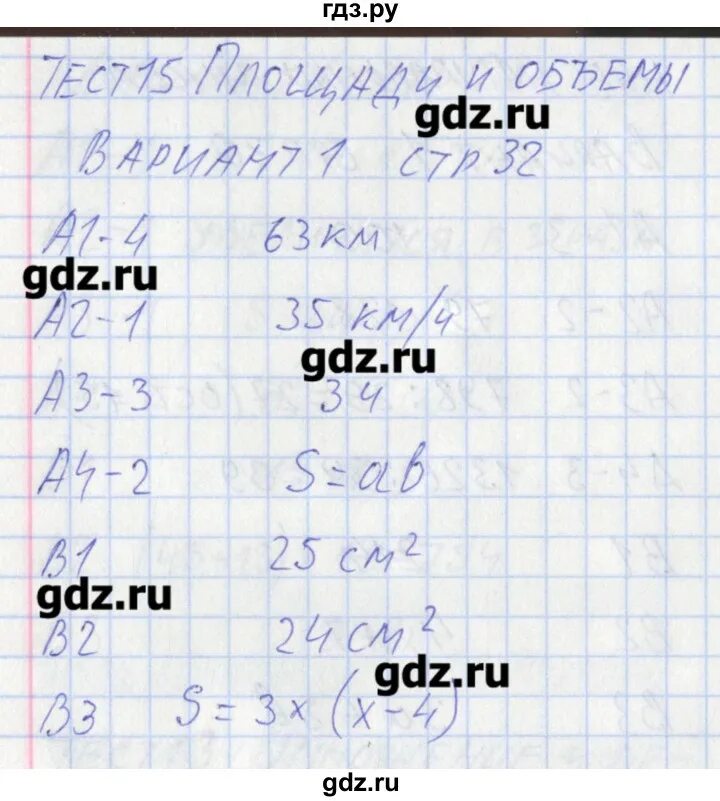 гдз.ру
ТЕСТ 15 ПЛОЩАДИ И ОБЪЕМЫ
gdz.ru
ВАРИАНТ 1 СТР 32
А1-4 63 км
gdz.ru
А2-1 35 км/ч
gdz.ru
А3-3 3ч
А4-2 S=ab
В1 25 см²
gdz.ru
В2 24 см²
gdz.ru
В3 S=3x(x-4)
gdz.ru